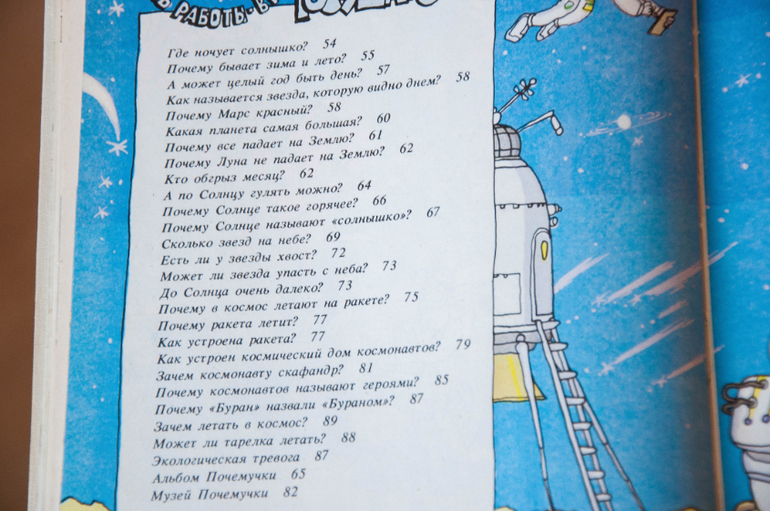 РАБОТЫ
Где ночует солнышко? 54
Почему бывает зима и лето? 55
А может целый год быть день? 57
Как называется звезда, которую видно днем? 58
Почему Марс красный? 58
Какая планета самая большая? 60
Почему все падает на Землю? 61
Почему Луна не падает на Землю? 62
Кто обгрыз месяц? 62
А по Солнцу гулять можно? 64
Почему Солнце такое горячее? 66
Почему Солнце называют «солнышко»? 67
Сколько звезд на небе? 69
Есть ли у звезды хвост? 72
Может ли звезда упасть с неба? 73
До Солнца очень далеко? 73
Почему в космос летают на ракете? 75
Почему ракета летит? 77
Как устроена ракета? 77
Как устроен космический дом космонавтов? 79
Зачем космонавту скафандр? 81
Почему космонавтов называют героями? 85
Почему «Буран» назвали «Бураном»? 87
Зачем летать в космос? 89
Может ли тарелка летать? 88
Экологическая тревога 87
Альбом Почемучки 65
Музей Почемучки 82